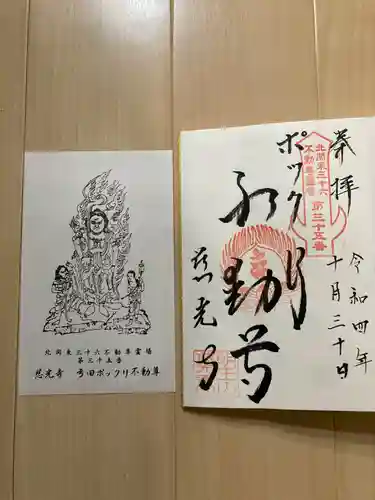 奉拝
令和四年
十月三十日
北関東三十六
不動尊霊場
第三十五番
ポックリ
不動尊
慈光寺
北関東三十六不動尊霊場
第三十五番
慈光寺 弓田ポックリ不動尊